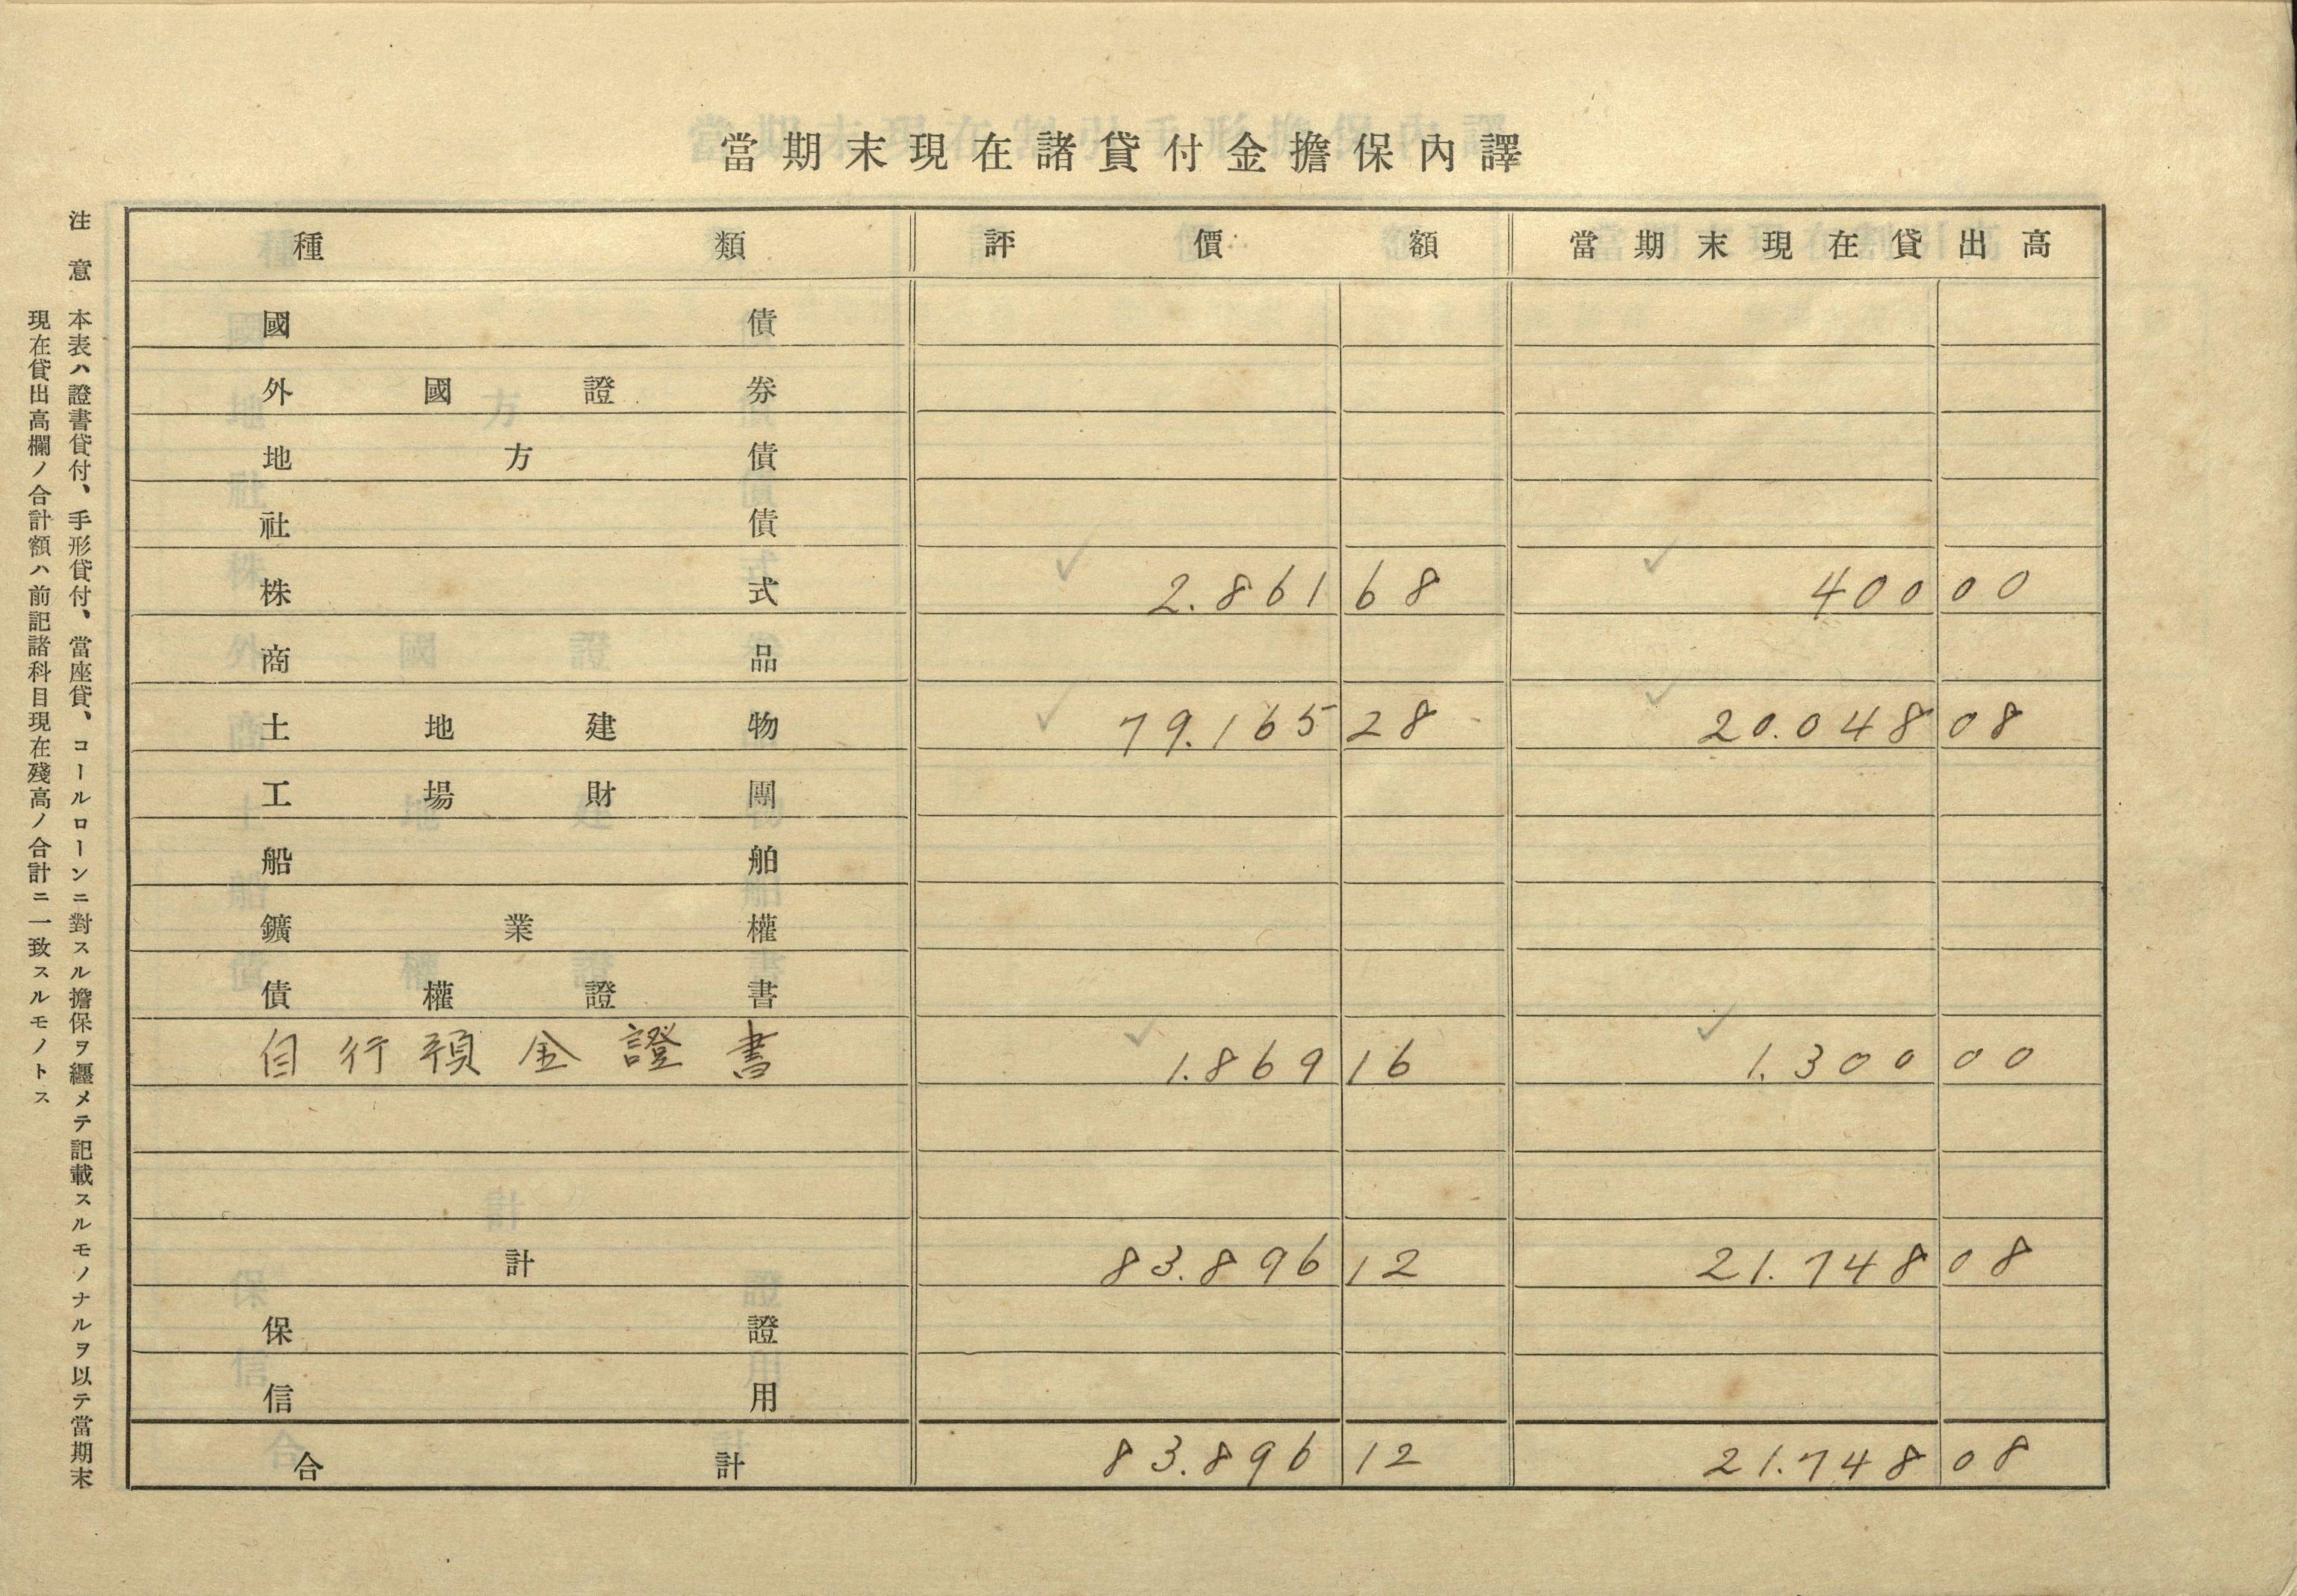 當期末現在諸貸付金擔保內譯
種類 評價額 當期末現在貸出高
國債
外國證券
地方債
社債
株式 2.861 68 400 00
商品
土地建物 79.165 28 20.048 08
工場財團
船舶
鑛業權
債權證書
自行預金證書 1.869 16 1.300 00
計 83.896 12 21.748 08
保證
信用
合計 83.896 12 21.748 08
注意 本表ハ證書貸付、手形貸付、當座貸、コールローンニ對スル擔保ヲ纒メテ記載スルモノナルヲ以テ當期末
現在貸出高欄ノ合計額ハ前記諸科目現在殘高ノ合計ニ一致スルモノトス